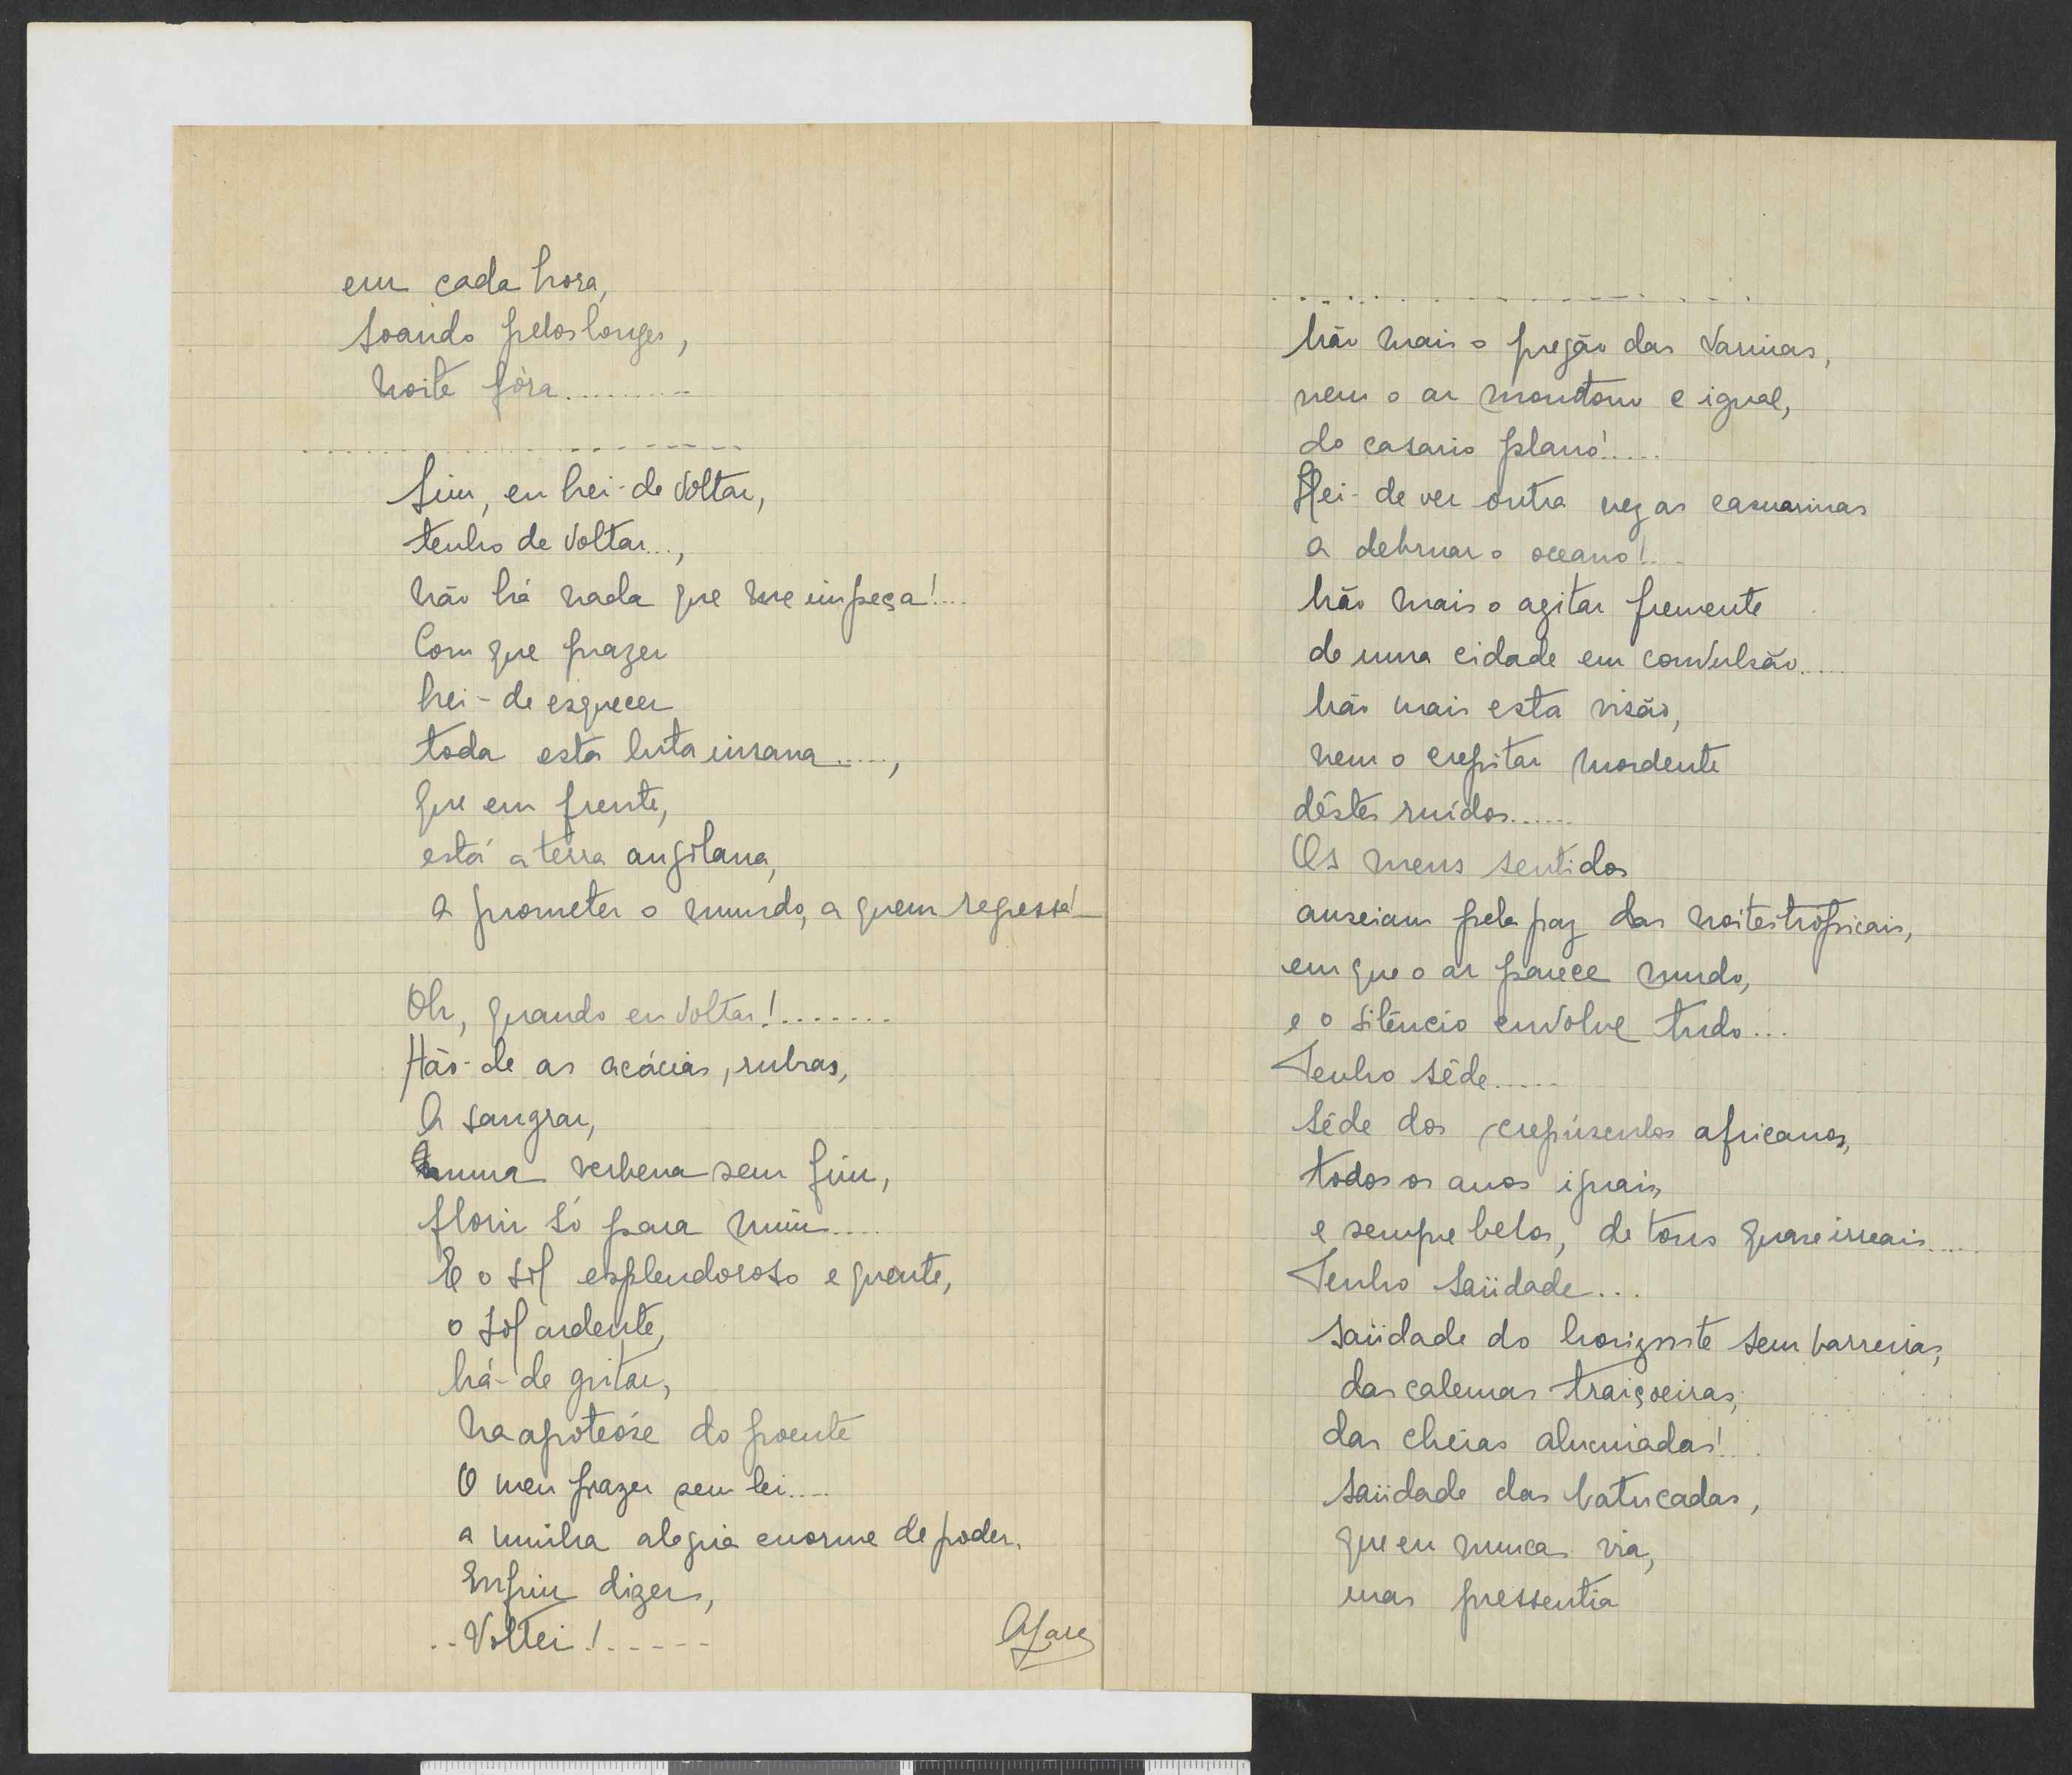 em cada hora,
soando pelos longes,
noite fóra.........
.....................
Sim, eu hei-de voltar,
tenho de voltar...,
não há nada que me impeça!....
Com que prazer
hei-de esquecer
toda esta luta insana.....,
que em frente,
está a terra angolana,
a prometer o mundo, a quem regressa!
Oh, quando eu voltar!........
Hão-de as acácias, rubras,
a sangrar,
numa verbena sem fim,
florir só para mim....
E o sol esplendoroso e quente,
o sol ardente,
há-de gritar,
na apoteóse do poente
O meu prazer sem lei....
a minha alegria enorme de poder.
Enfim dizer,
..Voltei!.....
.....................
Não mais o pregão das varinas,
nem o ar monótono e igual,
do casario plano!.....
Hei-de ver outra vez as casuarinas
a debruar o oceano!...
Não mais o agitar fremente
de uma cidade em convulsão....
Não mais esta visão,
nem o crepitar mordente
dêstes ruídos......
Os meus sentidos
anseiam pela paz das noites tropicais,
em que o ar parece mudo,
e o silêncio envolve tudo...
Tenho sêde.....
sêde dos crepúsculos africanos,
todos os anos iguais,
e sempre belos, de tons quase irreais....
Tenho saüdade...
saüdade do horizonte sem barreiras,
das calemas traiçoeiras,
das cheias alucinadas!..
saüdade das batucadas,
que eu nunca via,
mas pressentia